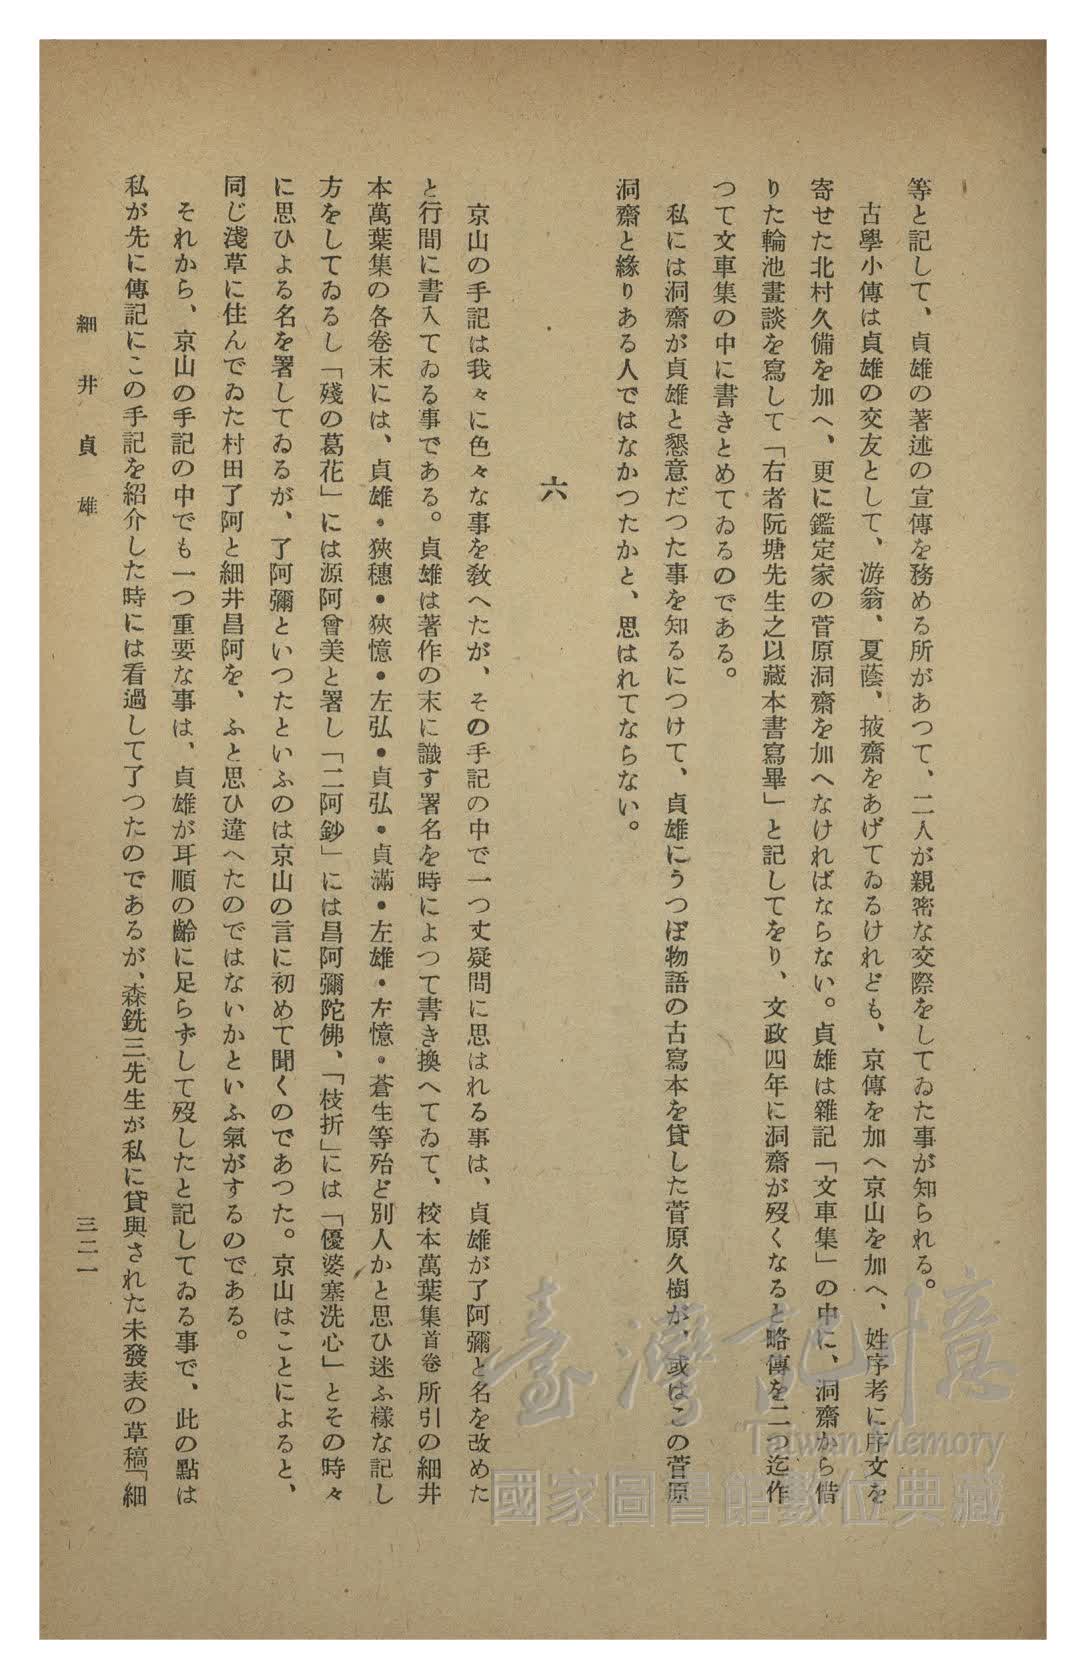 等と記して、貞雄の著述の宣傳を務める所があつて、二人が親密な交際をしてゐた事が知られる。
古學小傳は貞雄の交友として、游翁、夏蔭、掖齋をあげてゐるけれども、京傳を加へ京山を加へ、姓序考に序文を
寄せた北村久備を加へ、更に鑑定家の菅原洞齋を加へなければならない。貞雄は雜記「文車集」の中に、洞齋から借
りた輪池畫談を寫して「右者阮塘先生之以藏本書寫畢」と記してをり、文政四年に洞齋が歿くなると略傳を二つ迄作
つて文車集の中に書きとめてゐるのである。
私には洞齋が貞雄と懇意だつた事を知るにつけて、貞雄にうつぼ物語の古寫本を貸した菅原久樹が、或はこの菅原
洞齋と緣りある人ではなかつたかと、思はれてならない。
六
京山の手記は我々に色々な事を敎へたが、その手記の中で一つ丈疑問に思はれる事は、貞雄が了阿彌と名を改めた
と行間に書入てゐる事である。貞雄は著作の末に識す署名を時によつて書き換へてゐて、校本萬葉集首卷所引の細井
本萬葉集の各卷末には、貞雄・狹穗・狹憶・左弘・貞弘・貞滿・左雄・左憶・蒼生等殆ど別人かと思ひ迷ふ樣な記し
方をしてゐるし「殘の葛花」には源阿曾美と署し「二阿鈔」には昌阿彌陀佛、「枝折」には「優婆塞洗心」とその時々
に思ひよる名を署してゐるが、了阿彌といつたといふのは京山の言に初めて聞くのであつた。京山はことによると、
同じ淺草に住んでゐた村田了阿と細井昌阿を、ふと思ひ違へたのではないかといふ氣がするのである。
それから、京山の手記の中でも一つ重要な事は、貞雄が耳順の齡に足らずして歿したと記してゐる事で、此の點は
私が先に傳記にこの手記を紹介した時には看過して了つたのであるが、森銑三先生が私に貸與された未發表の草稿「細
細井貞雄
三二一
臺灣記憶
Taiwan Memory
國家圖書館數位典藏